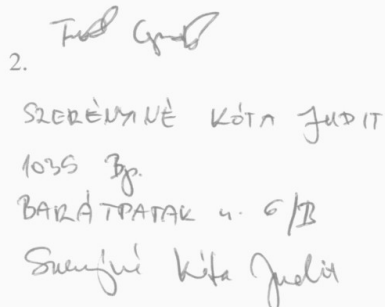 2.
SZERÉNYINÉ KÓTA JUDIT
1035 Bp.
BARÁTPATAK u. 6/B
Szerényiné Kóta Judit